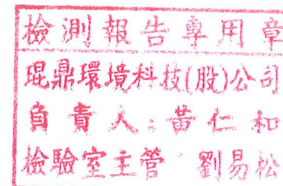 檢測報告專用章
琨鼎環境科技(股)公司
負責人：黃仁和
檢驗室主管 劉易松